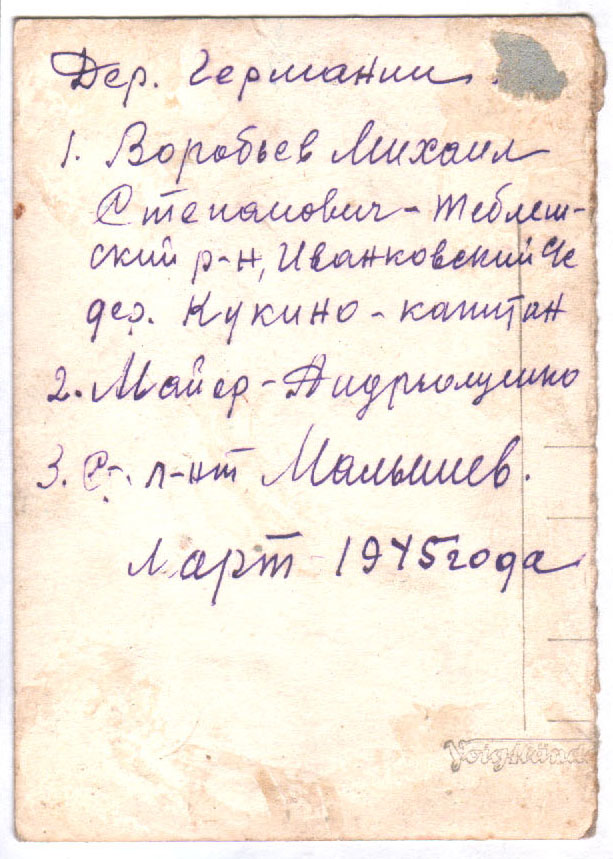 Дер. Германии.
1. Воробьев Михаил
Степанович - Теблеш-
ский р-н, Иванковский
дер. Кукино - капитан
2. Майер -
3. Ст. л-нт Малышев.
Март - 1945 года
Voigtländ